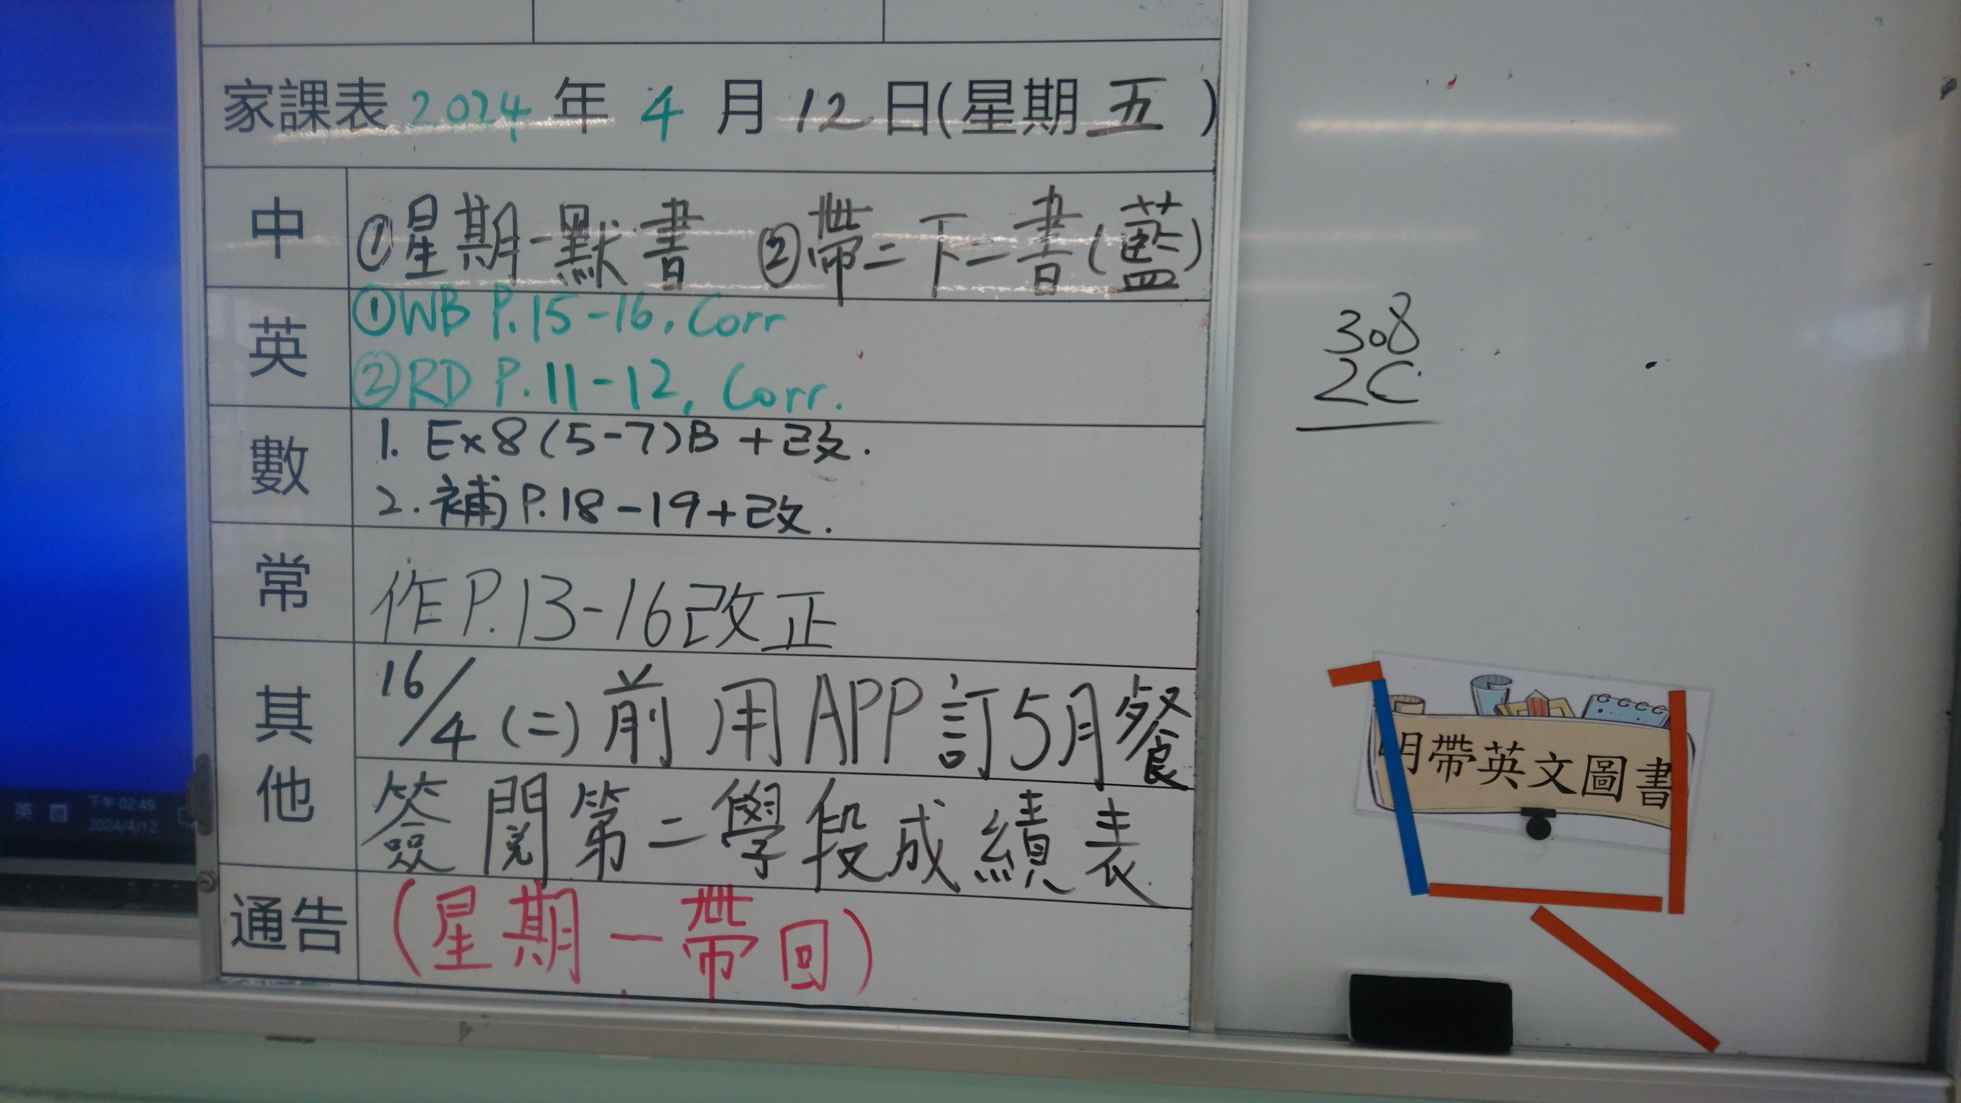 家課表 2024 年 4 月 12 日(星期 五 )
中 ①星期一默書 ②帶二下二書(藍)
英 ①WB P.15-16, Corr
②RD P.11-12, Corr.
數 1. Ex8(5-7)B+改.
2. 補P.18-19+改.
常 作P.13-16改正
其他 16/4(二)前用APP訂5月餐
簽閱第二學段成績表
通告 (星期一帶回)
308
2C
明帶英文圖書
英
下午 02:49
2024/4/12